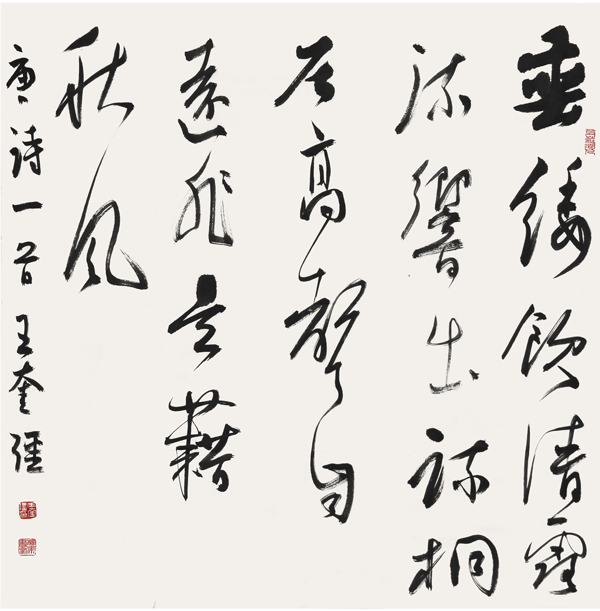 垂緌飲清露
流響出疏桐
居高聲自
遠非是藉
秋風
唐詩一首 王奎